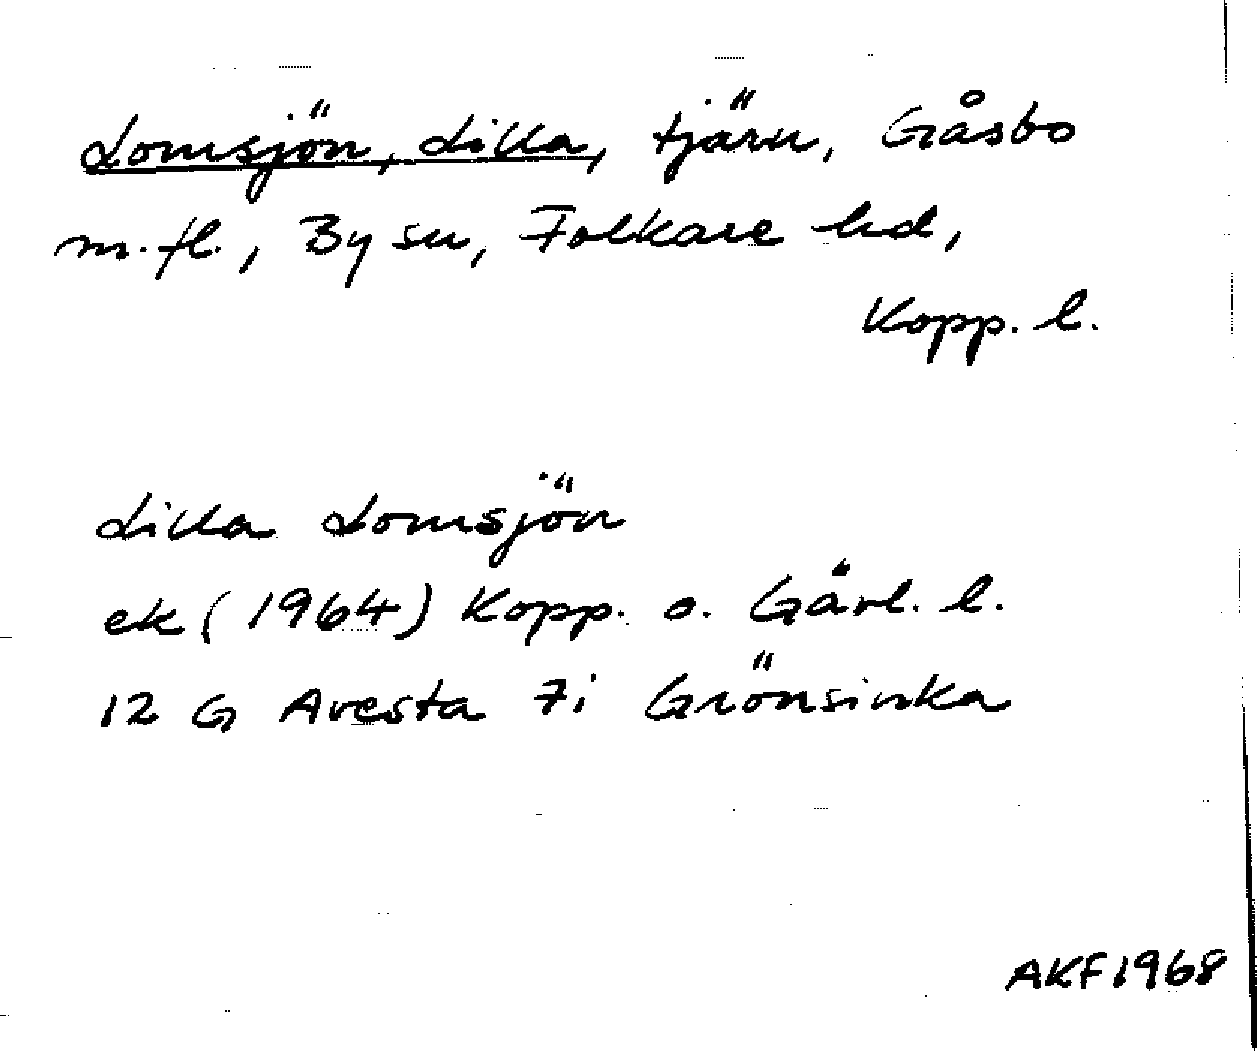 Lomsjön, Lilla, tjärn, Gåsbo
m.fl., By sn, Folkare hd,
Kopp. l.
Lilla Lomsjön
ek (1964) Kopp. o. Gävl. l.
12 G Avesta 7i Grönsinka
AKF 1968